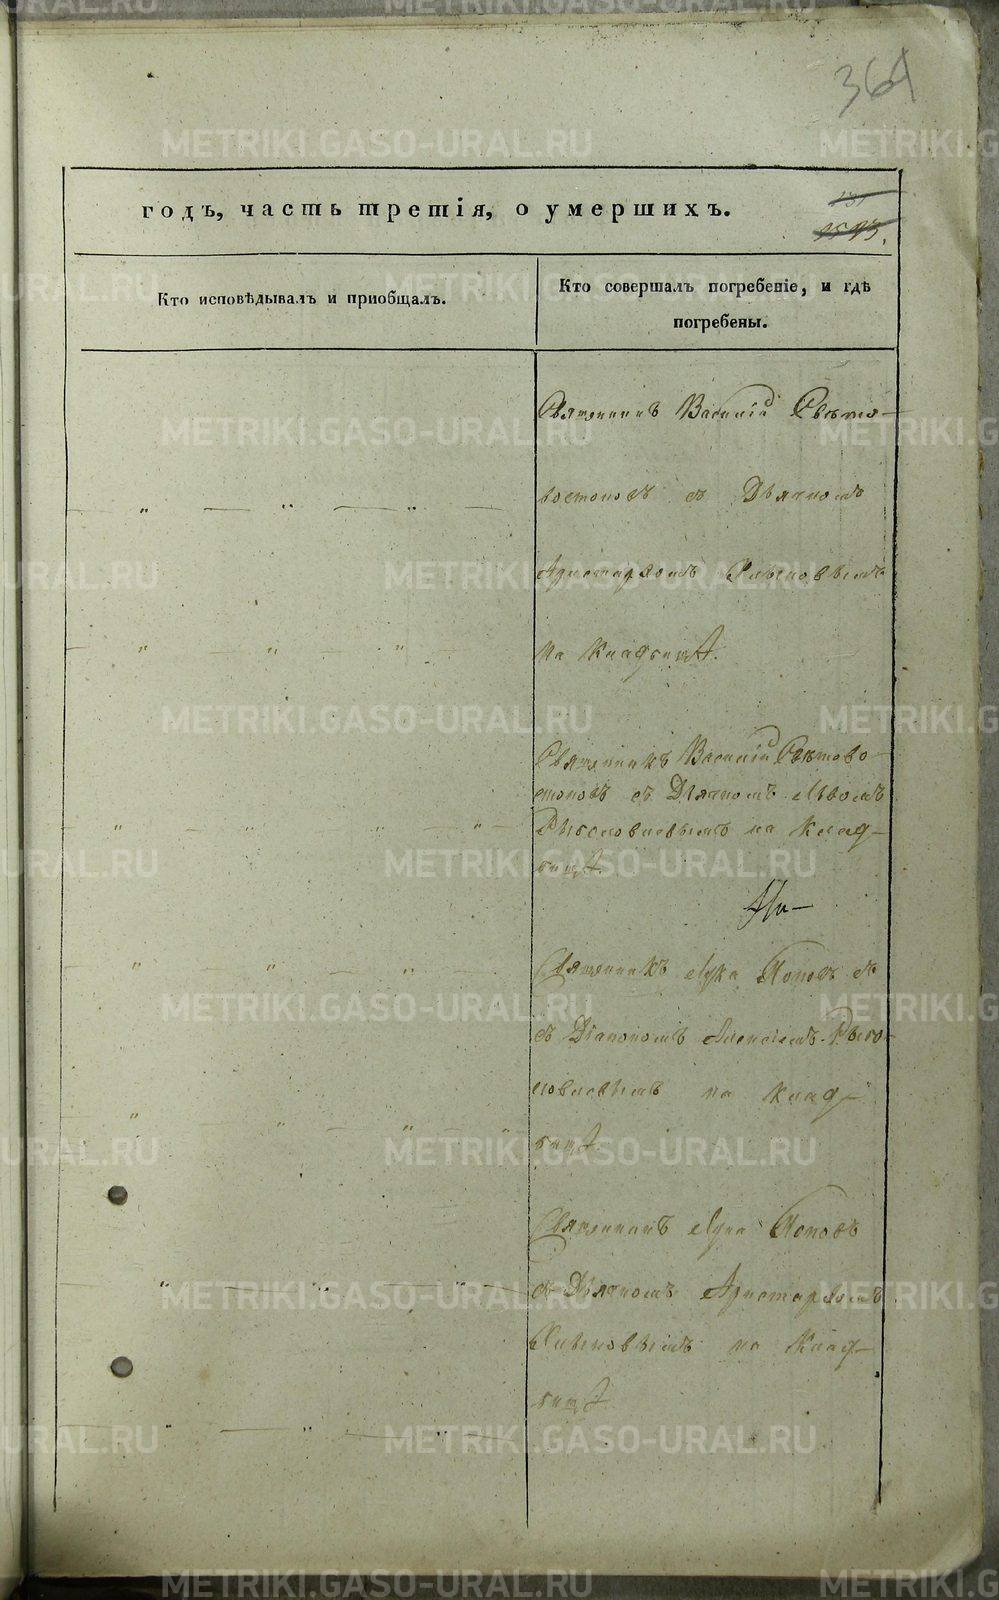 364
годъ, часть третія, о умершихъ.
Кто исповѣдывалъ и приобщалъ.
Кто совершалъ погребеніе, и гдѣ
погребены.
Священникъ Василій Свѣто-
востоковъ съ Дьячкомъ
Аристархомъ Хлыновымъ
на кладбищѣ.
Священникъ Василій Свѣтово-
стоковъ съ Дьячкомъ Львомъ
на клад-
бищѣ.
Священникъ Лука Поповъ съ
съ Діакономъ Алексіемъ
на клад-
бищѣ.
Священникъ Лука Поповъ
съ Дьячкомъ Аристархомъ
Хлыновымъ на клад-
бищѣ
METRIKI.GASO-URAL.RU